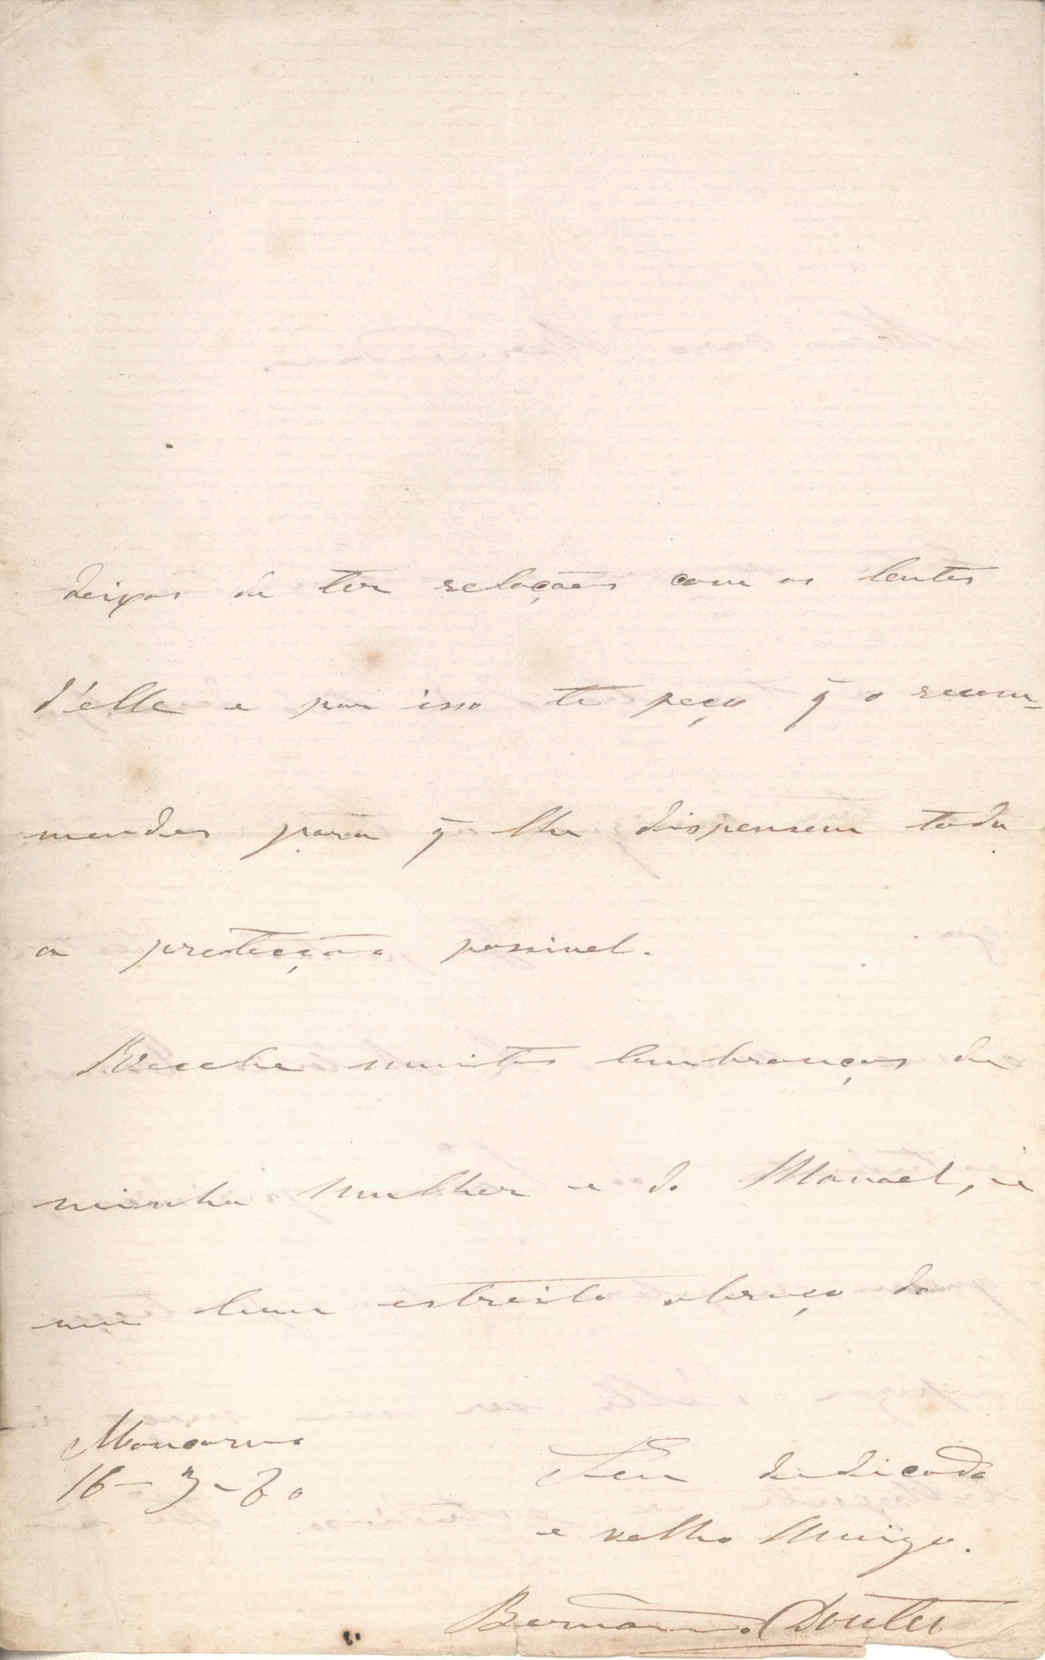 deixas de ter relações com os lentes
d'elle e por isso te peço q̃ o recom-
mendes para q̃ lhe dispensem toda
a protecção possivel.
Recebe muitas lembranças de
minha mulher e do Manoel, e
um bem estreito abraço do
Teu dedicado
e velho Amigo.
Moncorvo
16-3-80
Bernardo Doutel